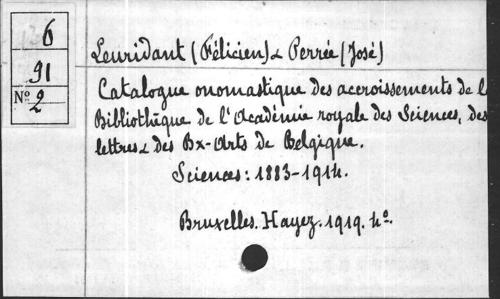 6
91
Nº 2
Leuridant (Félicien) & Perrée (José)
Catalogue onomastique des accroissements de l
Bibliothèque de l'Académie royale des Sciences, des
lettres & des Bx-Arts de Belgique.
Sciences: 1883-1914.
Bruxelles. Hayez. 1919. 4º.